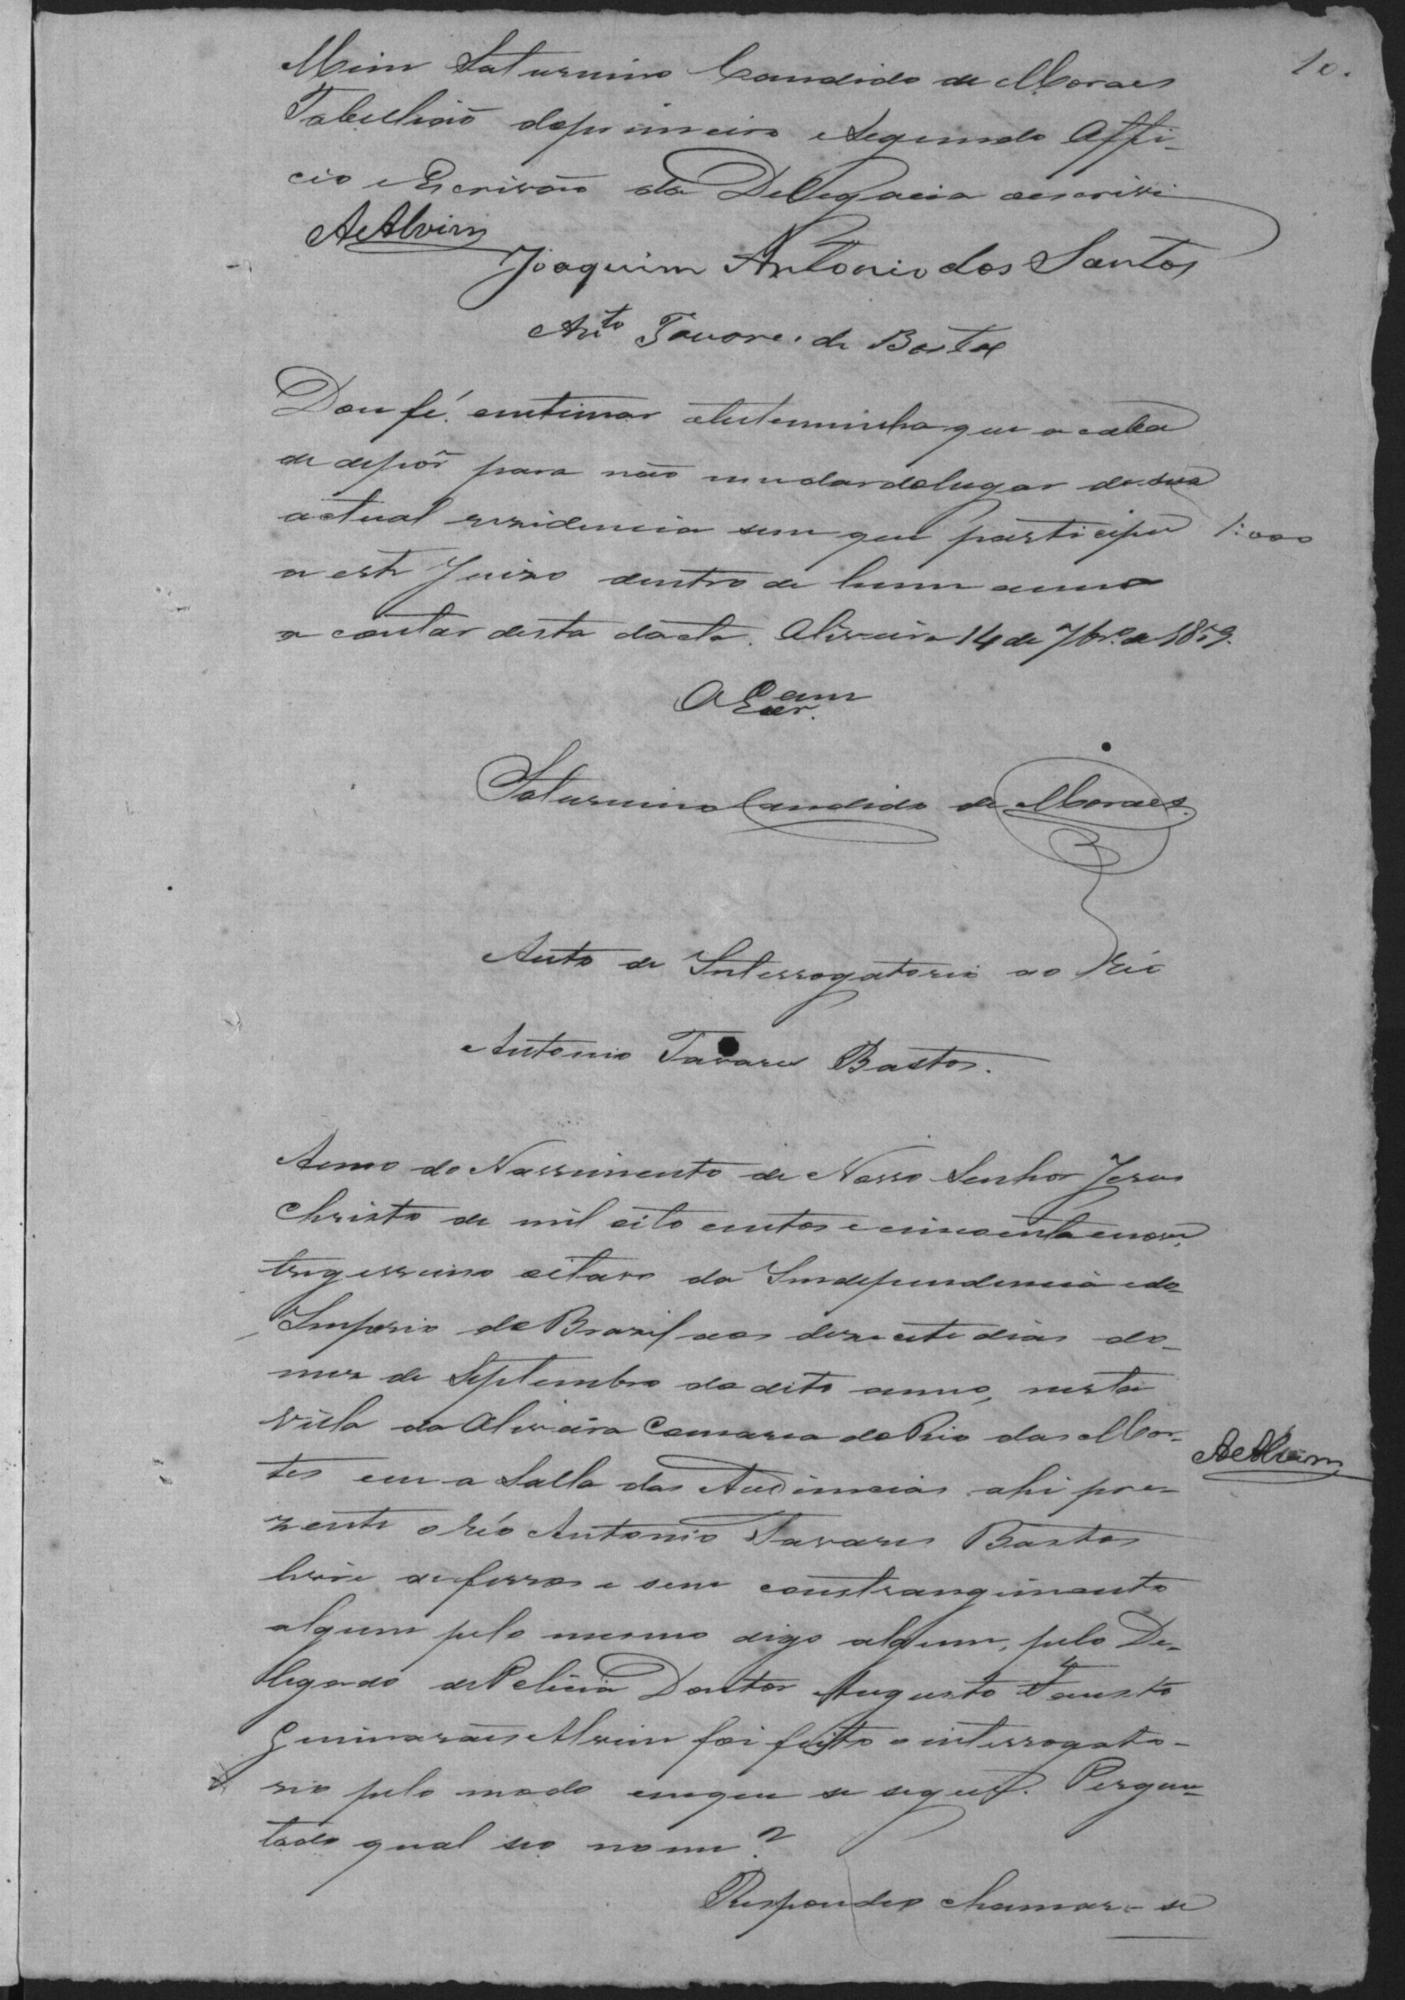 10.
Mim Saturnino Candido de Moraes
Tabellião do primeiro e segundo Offi-
cio e Escrivão da Delegacia o escrivi
A e Alvim
Joaquim Antonio dos Santos
Anto Tavares de Bastos
Dou fé entimar a testeminha que acaba
de depor para não mudar do lugar de sua
actual rezidencia sem que participe 1:000
a este Juizo dentro de hum anno
a contar desta dacta. Oliveira 14 de 7bro de 1859.
O Escr.am
Saturnino Candido de Moraes.
Auto de Interrogatorio ao Réo
Antonio Tavares Bastos.
Anno do Nassimento de Nosso Senhor Jesus
Christo de mil oito centos e cincoenta e nove,
trigessimo oitavo da Independencia e do
Imperio do Brazil aos dezecete dias do
mez de Septembro do dito anno, nesta
Villa da Oliveira Comarca do Rio das Mor-
A e Alvim
tes em a Salla das Audiencias ahi pre-
zente o réo Antonio Tavares Bastos
livre de ferros e sem constrangimento
algum pelo mesmo digo algum, pelo De-
legado de Policia Doutor Augusto Fausto
Guimarães Alvim foi feito o interrogato-
rio pelo modo emque se segue. Pergun-
tado qual seo nome?
Respondeo chamar-se